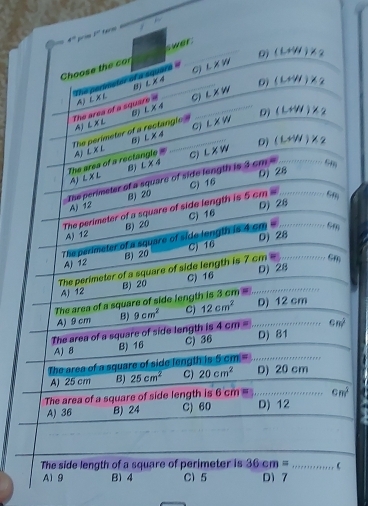 4th prim 1st term
Choose the correct answer:
The perimeter of a square =
A) L X L B) L X 4 C) L X W D) (L+W) X 2
The area of a square =
A) L X L B) L X 4 C) L X W D) (L+W) X 2
The perimeter of a rectangle =
A) L X L B) L X 4 C) L X W D) (L+W) X 2
The area of a rectangle = ..............
A) L X L B) L X 4 C) L X W D) (L+W) X 2
The perimeter of a square of side length is 3 cm = .............. cm
A) 12 B) 20 C) 16 D) 28
The perimeter of a square of side length is 5 cm = .............. cm
A) 12 B) 20 C) 16 D) 28
The perimeter of a square of side length is 4 cm = .............. cm
A) 12 B) 20 C) 16 D) 28
The perimeter of a square of side length is 7 cm = .............. cm
A) 12 B) 20 C) 16 D) 28
The area of a square of side length is 3 cm = ..............
A) 9 cm B) 9 cm² C) 12 cm² D) 12 cm
The area of a square of side length is 4 cm = .............. cm²
A) 8 B) 16 C) 36 D) 81
The area of a square of side length is 5 cm = ..............
A) 25 cm B) 25 cm² C) 20 cm² D) 20 cm
The area of a square of side length is 6 cm = .............. cm²
A) 36 B) 24 C) 60 D) 12
The side length of a square of perimeter is 36 cm = ............. c
A) 9 B) 4 C) 5 D) 7